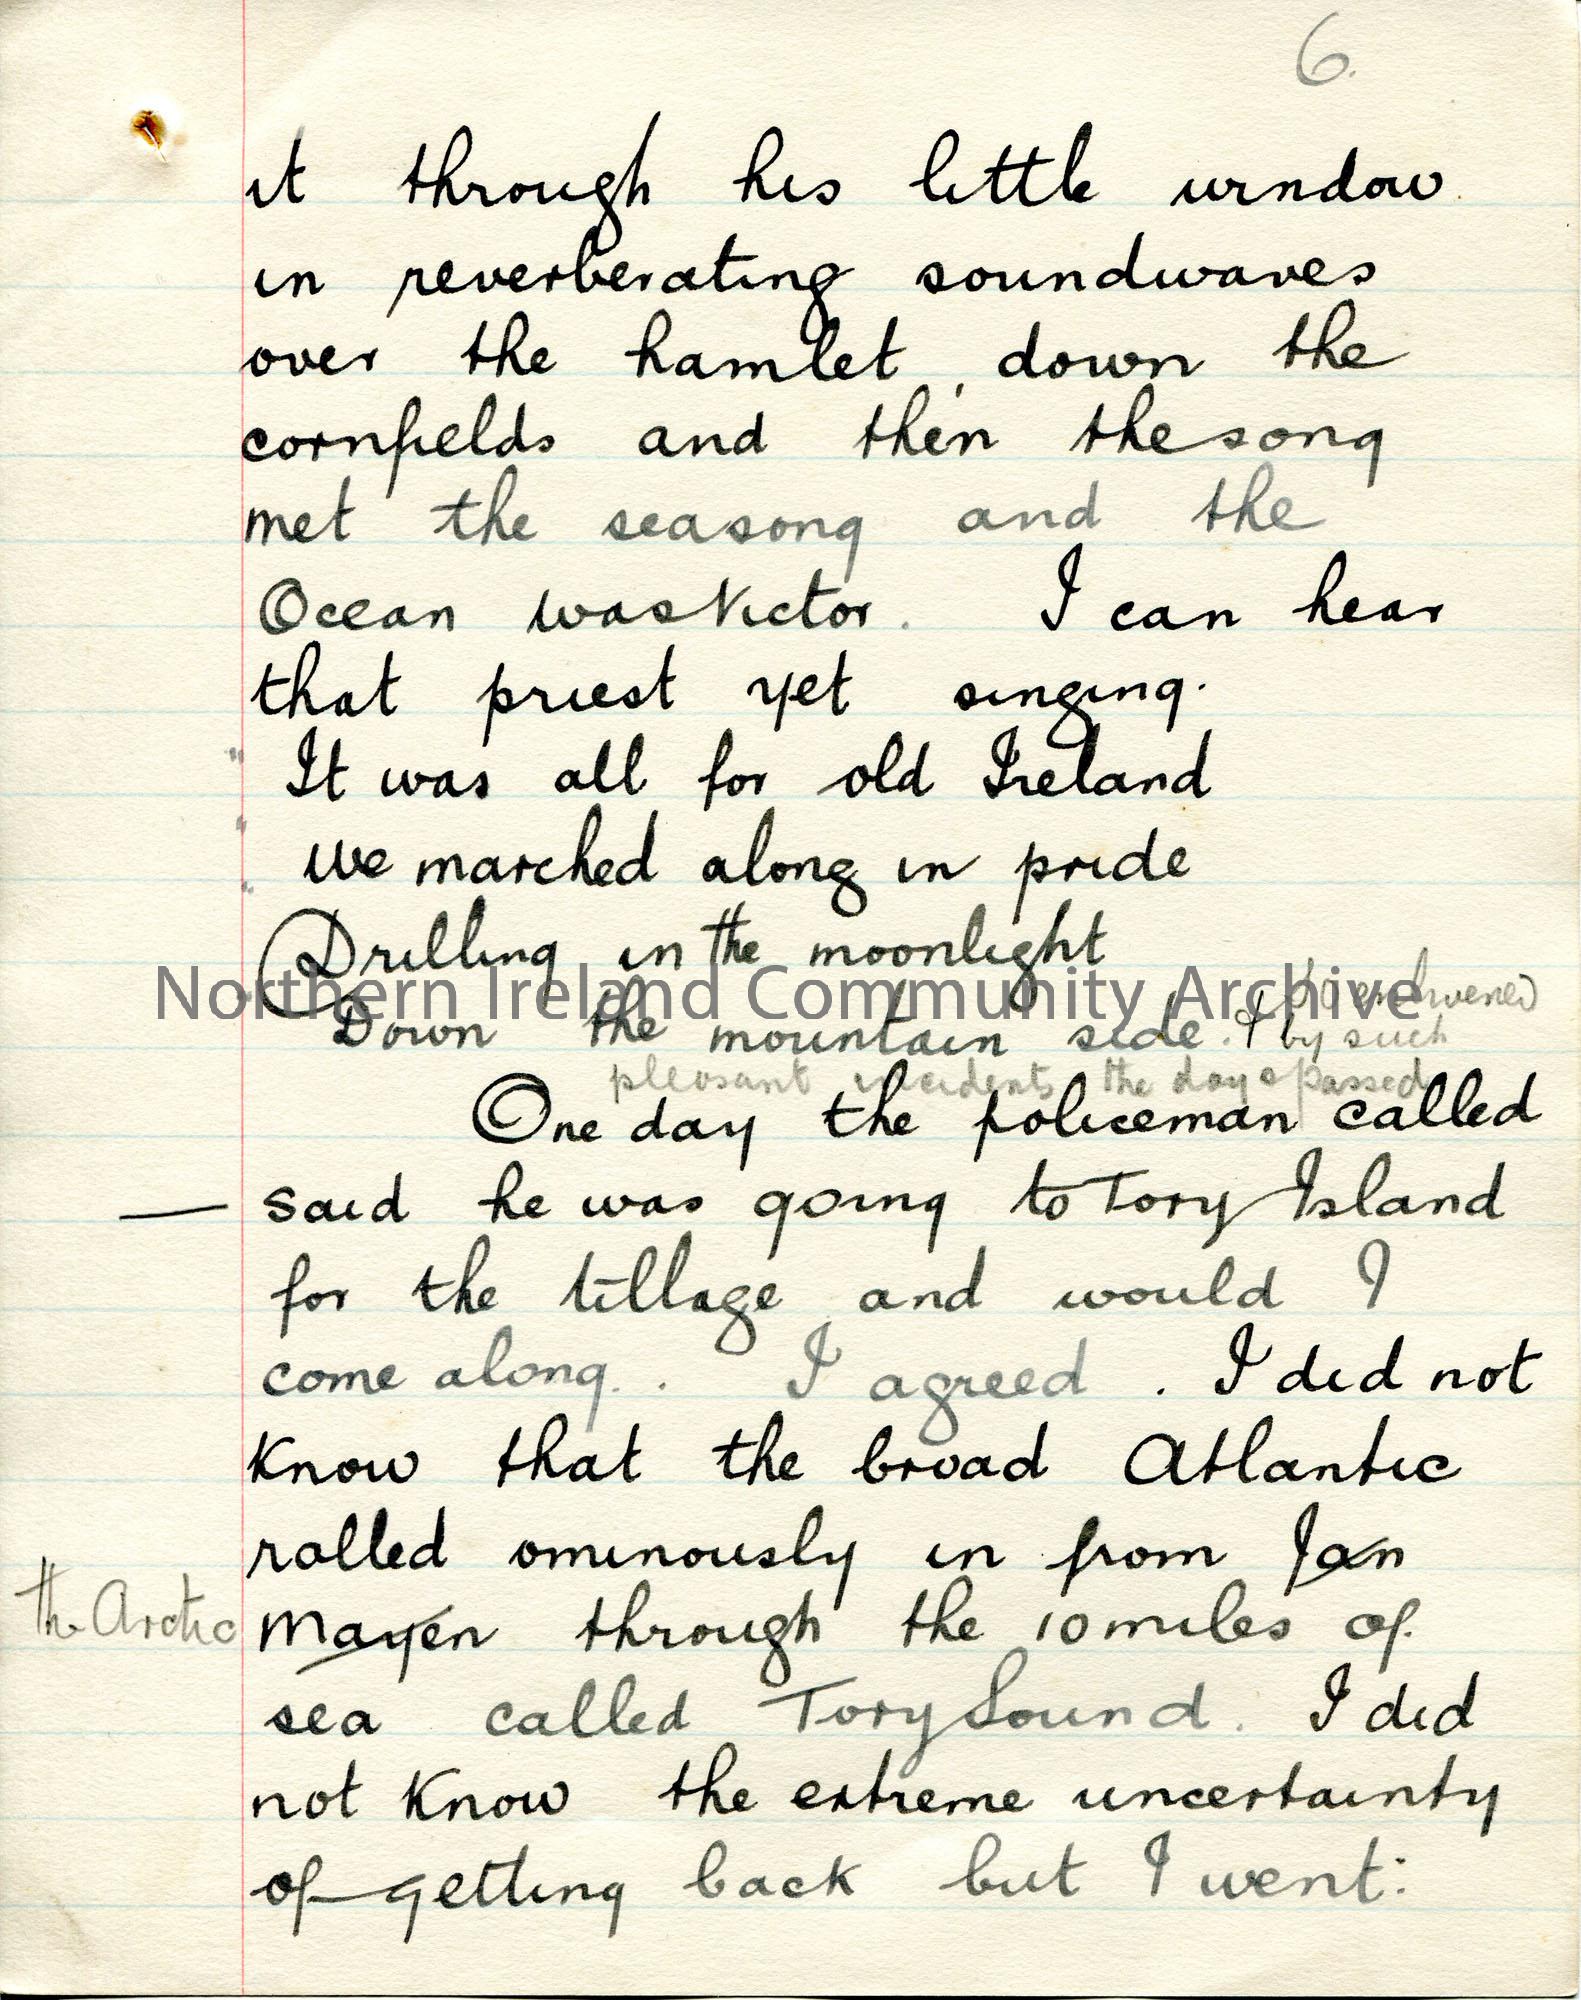 6.
it through his little window
in reverberating soundwaves
over the hamlet, down the
cornfields and then the song
met the seasong and the
Ocean was Victor. I can hear
that priest yet singing.
" It was all for old Ireland
" We marched along in pride
" Drilling in the moonlight
Down the mountain side. enlivened
by such
pleasant incidents the days passed
One day the policeman called
— said he was going to Tory Island
for the tillage and would I
come along. . I agreed . I did not
know that the broad Atlantic
rolled ominously in from Jan
the Arctic Mayen through the 10 miles of
sea called Tory Sound. I did
not know the extreme uncertainty
of getting back but I went:
Northern Ireland Community Archive